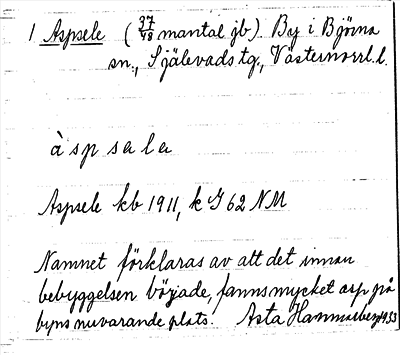 1 Aspsele (37/48 mantal jb). By i Björna
sn., Själevads tg., Västernorrl. l.
àspsala
Aspsele kb 1911, k I 62 NM
Namnet förklaras av att det innan
bebyggelsen började, fanns mycket asp på
byns nuvarande plats. Asta Hammarberg 1933